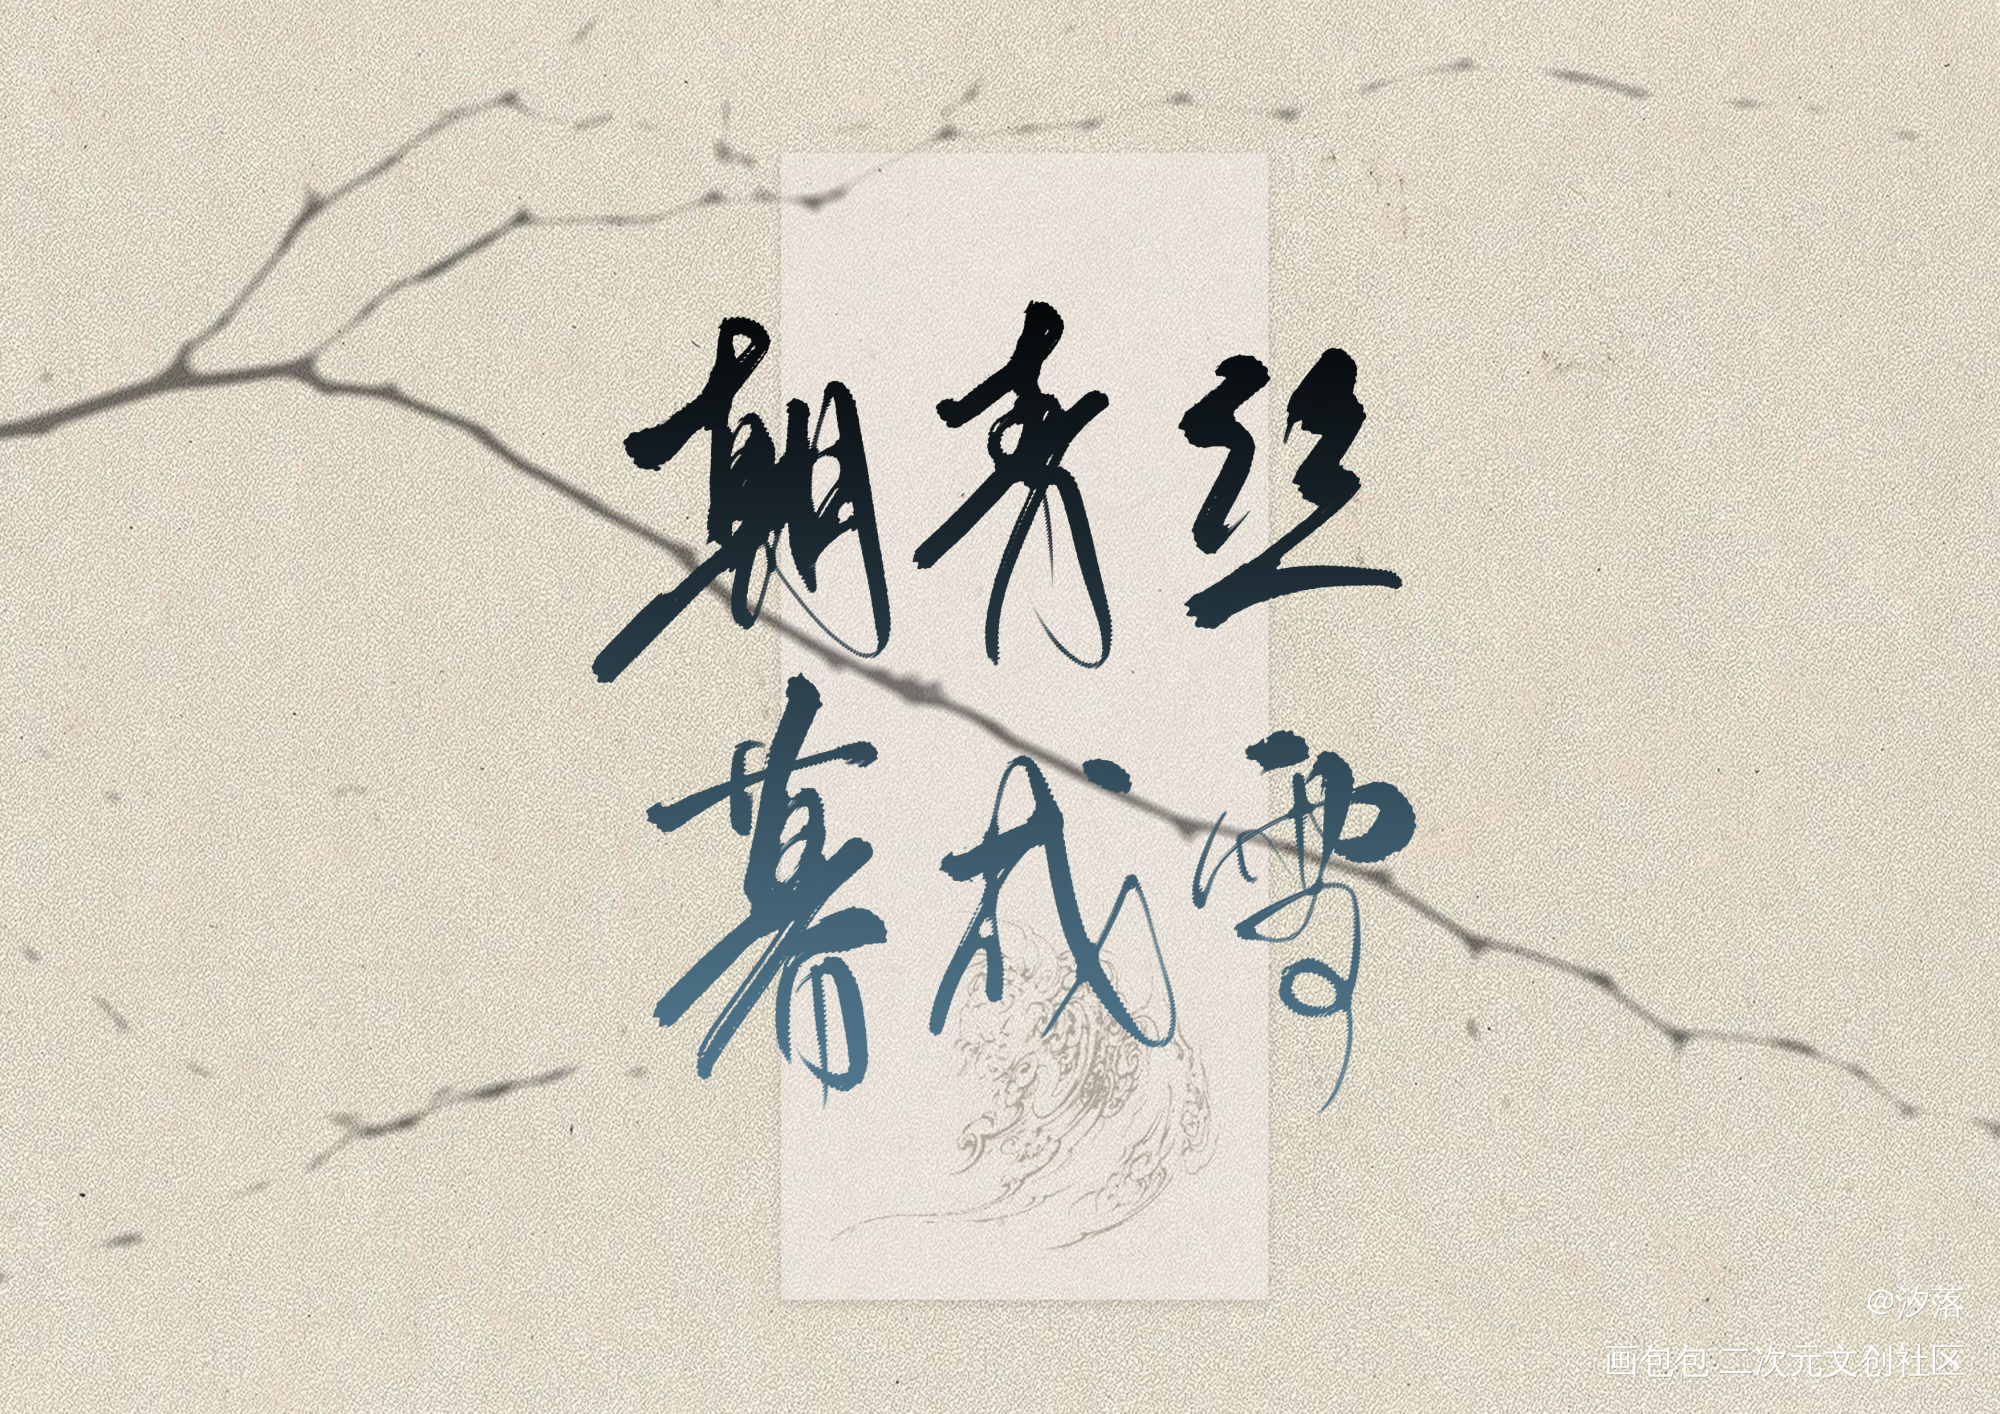 朝青丝
暮成雪
@汐落
画包包 二次元文创社区